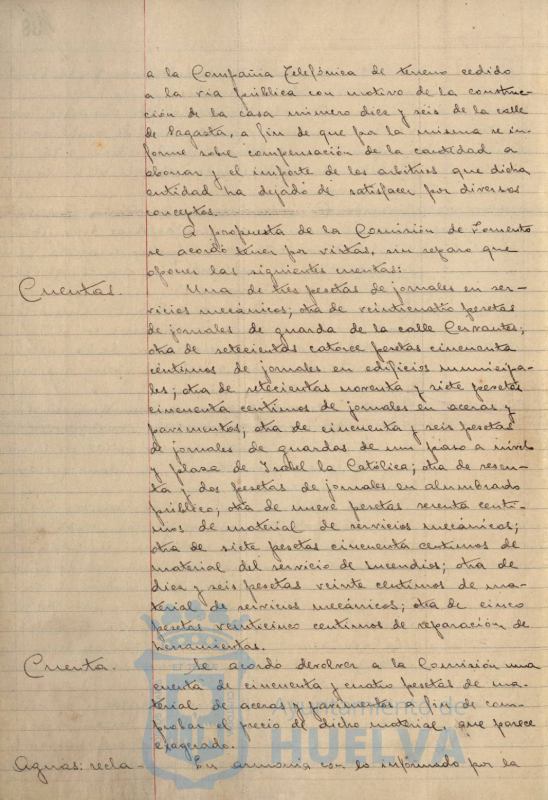 a la Compañia Telefónica de terreno cedido
a la via pública con motivo de la construc-
ción de la casa número diez y seis de la calle
de Sagasta, a fin de que por la misma se in-
forme sobre compensación de la cantidad a
abonar y el importe de los arbitrios que dicha
entidad ha dejado de satisfacer por diversos
conceptos.
A propuesta de la Comisión de Fomento
se acordó tener por vistas, sin reparo que
oponer las siguientes cuentas:
Cuentas. Una de tres pesetas de jornales en ser-
vicios mecánicos; otra de veinticuatro pesetas
de jornales de guarda de la calle Cervantes;
otra de setecientas catorce pesetas cincuenta
centimos de jornales en edificios municipa-
les; otra de setecientas noventa y siete pesetas
cincuenta centimos de jornales en aceras y
pavimentos; otra de cincuenta y seis pesetas
de jornales de guardas de un paso a nivel
y plaza de Isabel la Católica; otra de sesen-
ta y dos pesetas de jornales en alumbrado
público; otra de nueve pesetas setenta centi-
mos de material de servicios mecánicos;
otra de siete pesetas cincuenta centimos de
material del servicio de Incendios; otra de
diez y seis pesetas veinte centimos de ma-
terial de servicios mecánicos; otra de cinco
pesetas veinticinco centimos de reparación de
herramientas.
Cuenta. Se acordó devolver a la Comisión una
cuenta de cincuenta y cuatro pesetas de ma-
terial de aceras y pavimentos a fin de com-
probar el precio de dicho material, que parece
exagerado.
Aguas: recla- En armonia con lo informado por la
Ayuntamiento de
HUELVA